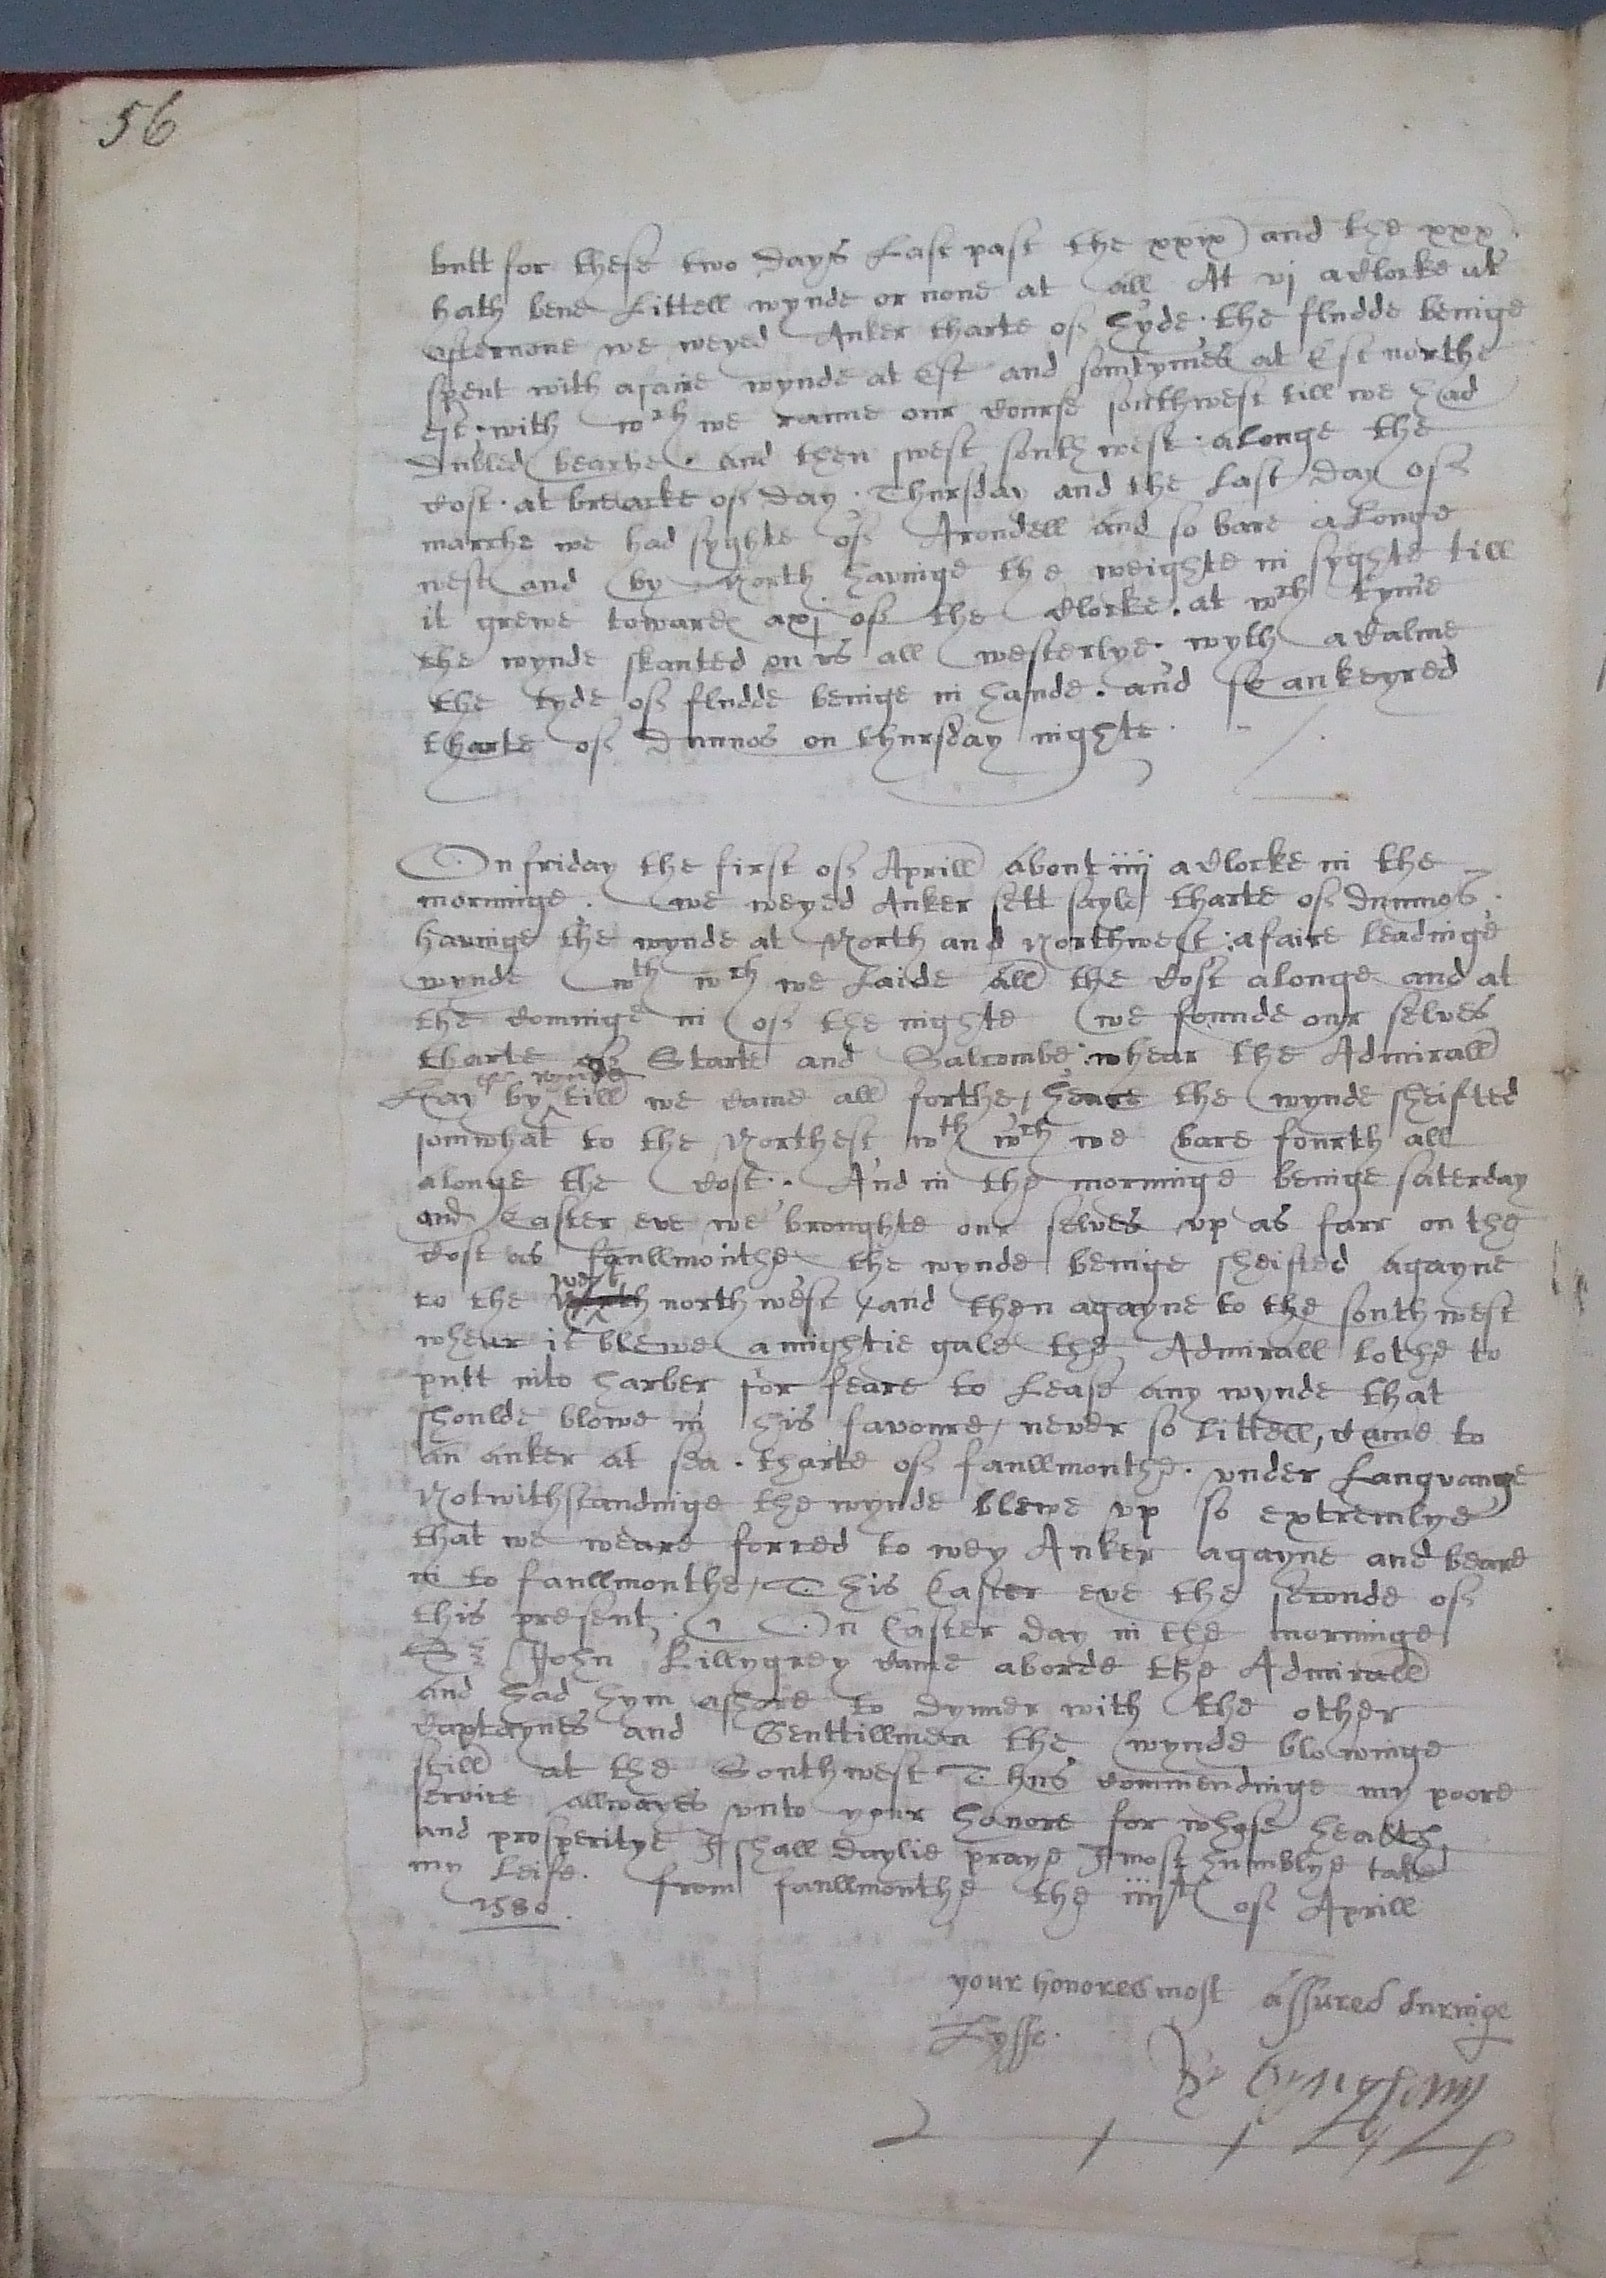 56
butt for these two days Last past the xxix and the xxx
hath bene Littell wynde or none at all At vj a clocke att
afternone we weyed Anker tharte off Hyde. the fludde beinge
spent with a faire wynde at Est and somtymes at Est northe
est. with wch we ranne our course southwest till we had
dubled beache. and then west south west. alonge the
cost. at breacke off day. Thursday and the Last day off
marche we had syghte off Arondell and so bare alonge
west and by North havinge the weighte in syghte till
it grewe towardes a xj off the clocke. at wch tyme
the wynde skanted on us all westerlye. wyth a calme
the tyde off fludde beinge in hande. and so ankeyred
tharte off dunnos on thursday nighte.
On friday the first off Aprill about iiij a clocke in the
morninge. we weyed Anker sett sayle tharte off dunnos.
havinge the wynde at North and Northwest: a faire leadinge
wynde wth wch we Laide all the cost alonge and at
the cominge in off the nighte we founde our selves
tharte off Starte and Salcombe: whear the Admirall
Lay by till we came all forthe / heare the wynde sheifted
somwhat to the Northest wth wch we bare fourth all
alonge the cost. And in the morninge beinge saterday
and Easter eve we broughte our selves vp as farr on the
cost as faullmouthe the wynde beinge sheifted agayne
to the west north west / and then agayne to the southwest
whear it blewe a mightie gale the Admirall lothe to
putt into harber for feare to Lease any wynde that
shoulde blowe in his favoure / never so littell, came to
an anker at sea. tharte off faullmouthe. vnder Langvange
Notwithstandinge the wynde blewe vp so extremlye
that we weare forced to wey Anker agayne and beare
in to faullmouthe / This Easter eve the seconde off
this present, On Easter day in the morninge
Sr John Killygrey came aborde the Admirall
and had hym ashore to dynner with the other
Captaynes and Genttillmen the wynde blowinge
still at the Southwest Thus commendinge my poore
service allwayes vnto your honore for whose healthe
and prosperitye I shall daylie praye I most humblye take
my Leife. from faullmouthe the iiijth off Aprill
1580.
your honores most assured duringe
Lyffe.
Ry Byngham